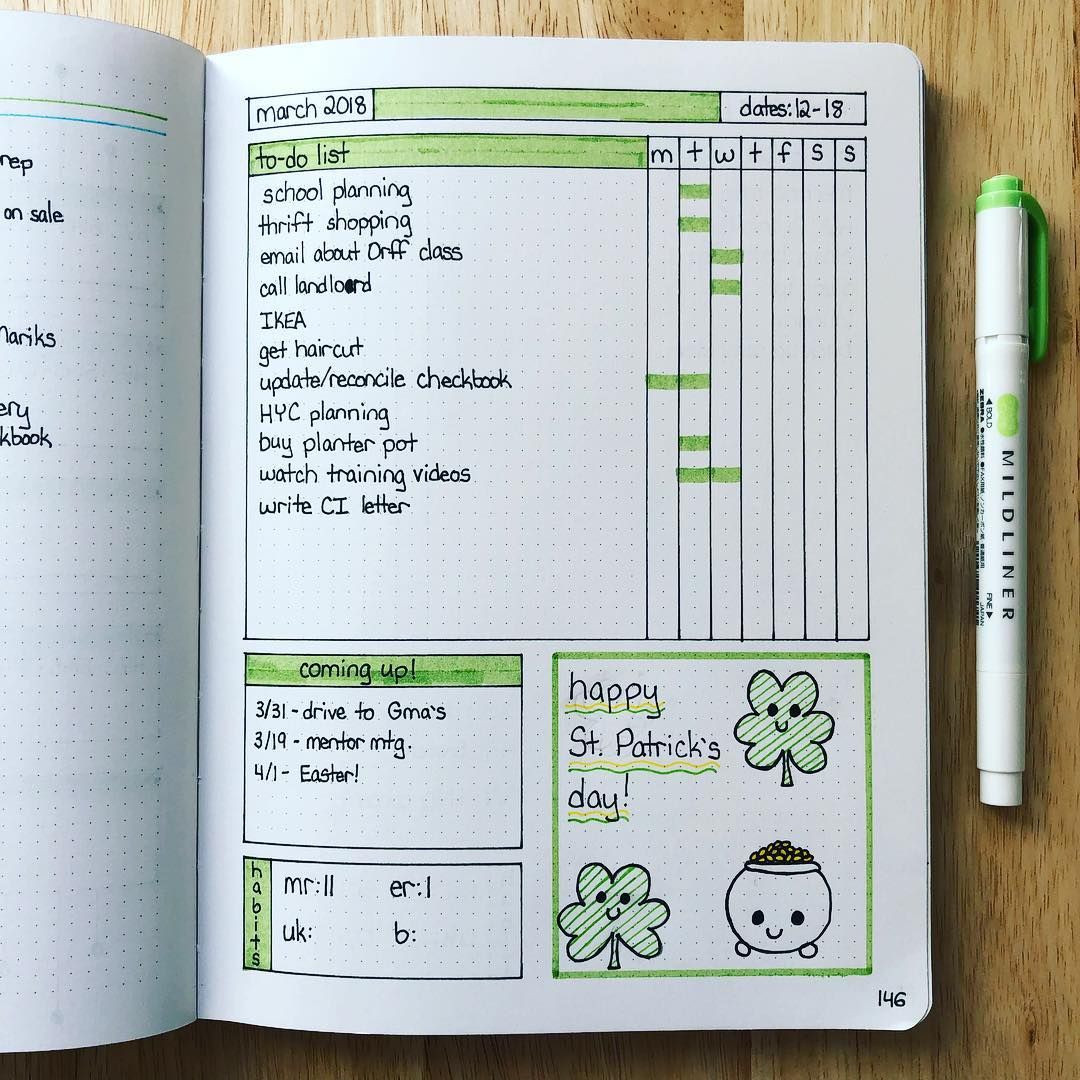 rep
on sale
Mariks
ery
kbook
march 2018
dates: 12-18
to-do list
m t w t f s s
school planning
thrift shopping
email about Orff class
call landlord
IKEA
get haircut
update/reconcile checkbook
HYC planning
buy planter pot
watch training videos
write CI letter
coming up!
3/31 - drive to Gma's
3/19 - mentor mtg.
4/1 - Easter!
habits
mr: ll er: l
uk: b:
happy
St. Patrick's
day!
146
BOLD
ZEBRA
MILDLINER
FINE
JAPAN